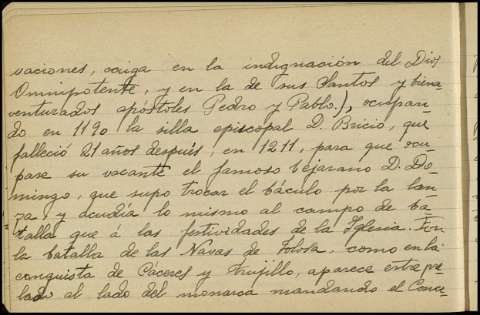 saciones, caiga en la indignación del Dios
Omnipotente, y en la de sus Santos y biena
venturados apóstoles Pedro y Pablo.), ocupan-
do en 1190 la silla episcopal D. Bricio, que
falleció 21 años después, en 1211, para que ocu-
pase su vacante el famoso bejarano D. Do-
mingo, que supo trocar el báculo por la lan-
za y acudía lo mismo al campo de ba-
talla que á las festividades de la Iglesia. En
la batalla de las Navas de Tolosa, como en la
conquista de Cáceres y Trujillo, aparece este pre-
lado al lado del monarca mandando el Conce-